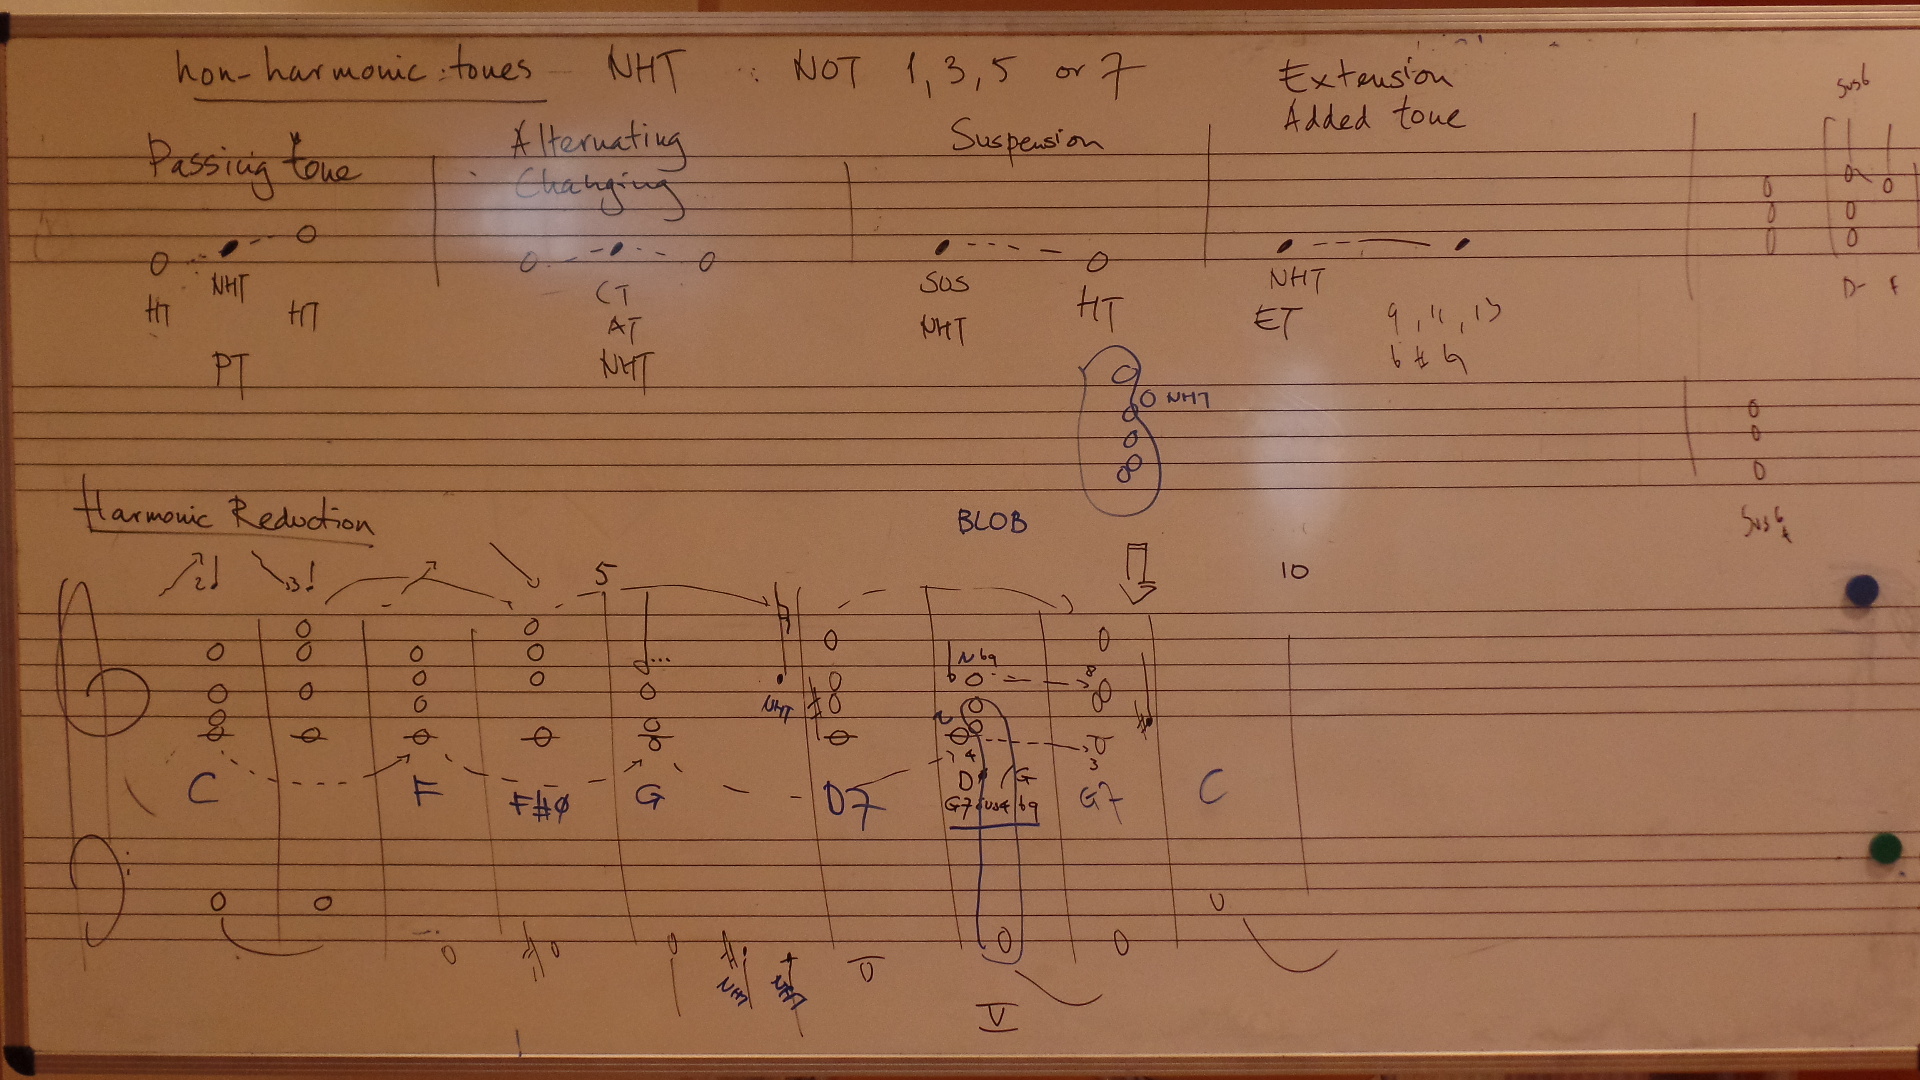 non-harmonic tones NHT : NOT 1, 3, 5 or 7
Extension
Added tone
Sus6
Passing tone
Alternating
Changing
Suspension
HT NHT HT
PT
CT
AT
NHT
SUS
NHT
HT
NHT
ET
9, 11, 13
b # 9
D- F
NHT
BLOB
Harmonic Reduction
Sus6
4
2!
3!
5
10
NHT
b9
8
4
3
D G
G7 sus4 b9
C F F#ø G D7 G7 C
NHT NHT
V